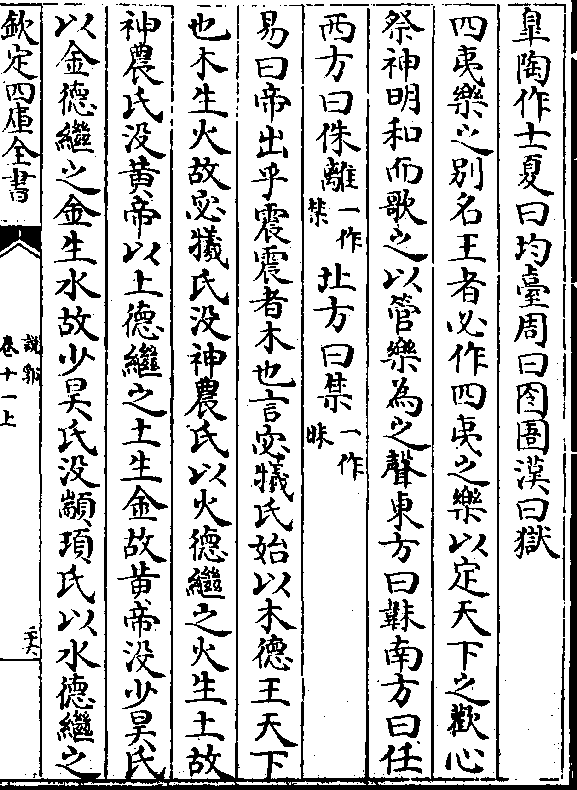 臯陶作士夏曰均臺周曰囹圄漢曰獄
四夷樂之別名王者必作四夷之樂以定天下之歡心
祭神明和而歌之以管樂為之聲東方曰韎南方曰任
西方曰侏離一作禁北方曰禁一作昧
易曰帝出乎震震者木也言宓犧氏始以木德王天下
也木生火故宓犧氏没神農氏以火德繼之火生土故
神農氏没黄帝以土德繼之土生金故黄帝没少昊氏
以金德繼之金生水故少昊氏没顓頊氏以水德繼之
欽定四庫全書
說郛
卷十一上